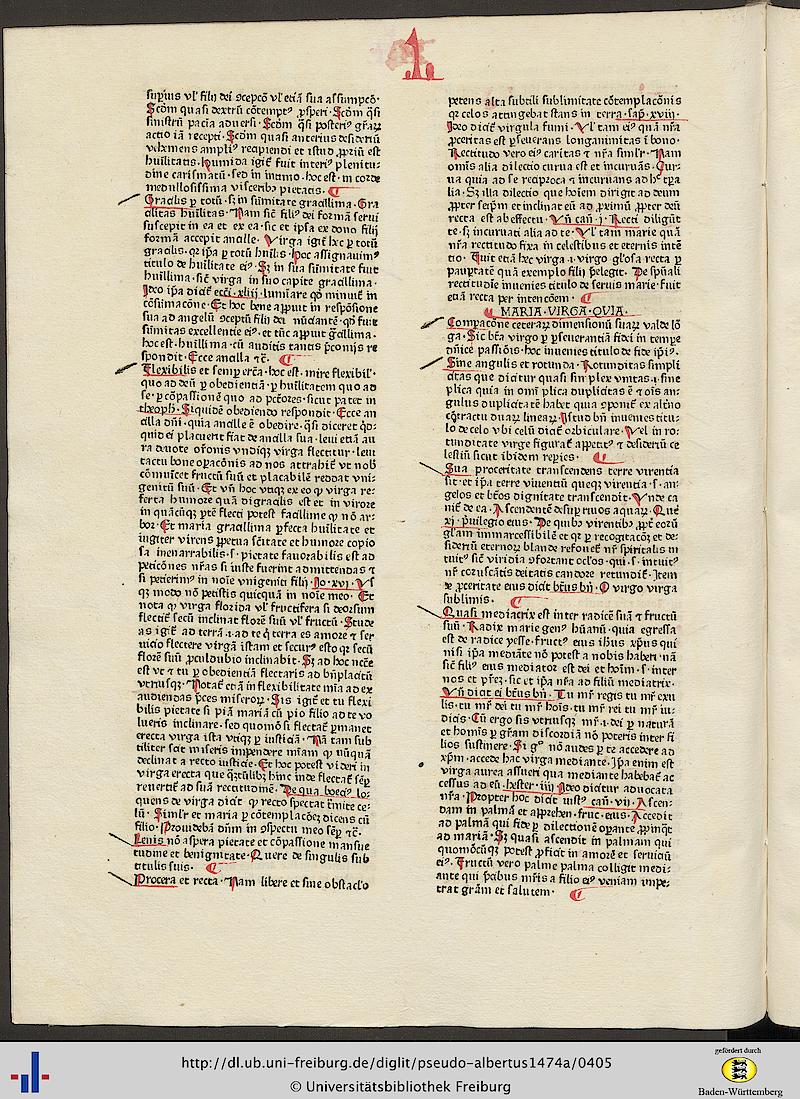 supius vl' filij dei ꝯcepcō vl' etiā sua assumpcō·
Scōm quasi dextrū cōtemptꝰ ꝓsperi· Scōm q̄si
sinistrū pacīa aduersi· Scōm q̄si posteriꝰ
actio iā recepti· Scōm quasi anterius desideriū
vehemens ampliꝰ recipiendi et istud ꝓpriū est
huilitatis· humida igit̄ fuit interiꝰ plenitu-
dine carismatū· sed in intimo· hoc est· in corde
medullosissima visceribꝰ pietatis·
Gracilis ꝑ totū· sꝫ in sūmitate gracillima· Gra
cilitas huilitas· Nam sic̄ filiꝰ dei formā serui
suscepit in ea et ex ea· sic et ipsa ex dono filij
formā accepit ancille· Virga igit̄ hic ꝑ totū
gracilis· qꝛ ip̄a ꝑ totū huilis· hoc assignauimꝰ
titulo de huilitate eiꝰ· Sꝫ in sua sūmitate fuit
huillima· sic̄ virga in suo capite gracillima·
Ideo ip̄a dicit̄ ecci· xliij· lumiare qd̄ minuit̄ in
cōsūmacōne· Et hoc bene apꝑuit in respōsione
sua ad angelū ꝯceptū filij dei nūciantē· qd̄ fuit
sūmitas excellentie eiꝰ· et tūc apꝑuit g̃cillima·
hoc est· huillima· cū auditis tantis p̄conijs re
spondit· Ecce ancilla ⁊c̄·
Flexibilis et semꝑ erēa· hoc est· mire flexibil'·
quo ad deū ꝑ obedientiā· ꝑ huilitatem quo ad
se· ꝑ cōpassionē quo ad pctores· sicut patet in
theoph'· Siquidē obediendo respondit· Ecce an
cilla dn̄i· quia ancille ē obedire· q̄si diceret qd̄-
quid ei placuerit fiat de ancilla sua· leui etiā au
ra deuote or̄onis vndiqꝫ virga flectitur· leui
tactu bone oꝑacōnis ad nos attrahit̄ vt nob̄
cōmuīcet fructū suū et placabilē reddat vni-
genitū suū· Et vn̄ hoc vtiqꝫ ex eo ꝙ virga re-
ferta humore quā digracilis est et in virore
in quācūqꝫ ꝑtē flecti potest facillime ꝙ nō ar-
bor· Et maria gracillima ꝑfecta huilitate et
iugiter virens ꝑpetua sc̄itate et humore copio
sa inenarrabilis· s· pietate fauorabilis est ad
peticōnes nr̄as si iuste fuerint admittendas ⁊
si petierimꝰ in noīe vnigeniti filij· Jo·xvi· Vs
qꝫ modo nō petistis quicquā in noīe meo· Et
nota ꝙ virga florida vl' fructifera si deorsum
flectit̄ secū inclinat florē suū vl' fructū· Stude
as igit̄ ad terrā ·i· ad te q̄ terra es amore ⁊ ser
uicio flectere virgā istam et securꝰ esto qꝫ secū
florē suū ꝓculdubio inclinabit· Sꝫ ad hoc nccē
est vt ⁊ tu ꝑ obedientiā flectaris ad bn̄placitū
vtriusqꝫ· Notat̄ etiā in flexibilitate mīa ad ex
audiendas p̄ces miseroꝝ· Sis igit̄ et tu flexi
bilis pietate si piā mariā cū pio filio ad te vo
lueris inclinare· sed quomō si flectat̄ ꝑmanet
erecta virga ista vtiqꝫ ꝑ iusticiā· Nā tam sub
tiliter scit miseris impendere mīam ꝙ nūquā
declinat a recto iusticie· Et hoc potest videri in
virga erecta que q̄ntulibꝫ hinc inde flectat̄ sēꝑ
reuertit̄ ad suā rectitudinē· De qua boeciꝰ lo-
quens de virga dicit ꝙ recto spectat v̄mite ce-
lū· Simlr̄ et maria ꝑ cōtemplacōeꝫ dicens cū
filio· Prouidebā dn̄m in ꝯspectu meo sēꝑ ⁊c̄·
Lenis nō aspera pietate et cōpassione mansue
tudine et benignitate· Quere de singulis sub
titulis suis·
Procera et recta· Nam libere et sine obstaclo
petens alta subtili sublimitate cōtemplacōnis
qꝛ celos attingebat stans in terra· sap̄·xviij·
Ideo dicit̄ virgula fumi· Vl' tam eiꝰ quā nr̄a
ꝓceritas est ꝑseuerans longanimitas ī bono·
Rectitudo vero eiꝰ caritas ⁊ nr̄a simlr̄· Nam
omīs alia dilectio curua est et incuruās· Cur-
ua quia ad se reciproca ⁊ incuruans ad
lia· Sꝫ illa dilectio que hoīem dirigit ad deum
ꝓpter seip̄m et inclinat eū ad ꝓximū ꝓpter deū
recta est ab effectu· Vn̄ can̄·j· Recti diligūt
te· sꝫ incuruati alia ad te· Vl' tam marie quā
nr̄a rectitudo fixa in celestibus et eternis intē
tio· Fuit etiā hec virga ·i· virgo gl'osa recta ꝑ
pauꝑtatē quā exemplo filij p̄elegit· De sp̄uāli
rectitudīe inuenies titulo de seruis marie· fuit
etiā recta per intencōem·
MARIA·VIRGA·QVIA·
Compacōne ceteraꝝ dimensionū suaꝝ valde lō
ga· Sic btā virgo ꝑ ꝑseuerantiā fidei in tempe
dn̄ice passiōis· hoc inuenies titulo de fide ip̄iꝰ·
Sine angulis et rotunda· Rotunditas simpli
citas que dicitur quasi sin plex vnitas· ·i· sine
plica quia in om̄i plica duplicitas ē ⁊ oīs an-
gulus duplicitatē habet quia ꝯponit̄ ex alt̄no
ꝯtractu duaꝝ lineaꝝ· Istud bn̄ inuenies titu-
lo de celo vbi celū dicit̄ orbiculare· Vel in ro-
tunditate virge figurat̄ appetitꝰ ⁊ desideriū ce
lestiū sicut ibidem reꝑies·
Sua proceritate transcendens terre virentia
sit· et ip̄a terre viuentiū queqꝫ virentia ·s· an-
gelos et btōs dignitate transcendit· Vnde ca
nit̄ de ea· Ascendentē desuꝑ riuos aquaꝝ· Que
xj· p̄uilegio eius· De quibꝰ virentibꝰ ꝓpt̄ eorū
gl'am immarcessibilē et qꝛ ꝑ recogitacōeꝫ et de-
sideriū eternoꝝ blande refouet̄ nr̄ spiritalis in
tuitꝰ sic̄ viridia ꝯfortant ocl'os· qui ·s· intuitꝰ
nr̄ coruscātis deitatis candore retundit̄· Item
de ꝓceritate eius dicit btūs bn̄· O virgo virga
sublimis·
Quasi mediatrix est inter radicē suā ⁊ fructū
suū· Radix marie genꝰ hūanū· quia egressa
est de radice yesse· fructꝰ eius ihūs xp̄us qui
nisi ip̄a mediāte nō potest a nobis haberi· nā
sic̄ filiꝰ eius mediator est dei et hoīm· s· inter
nos et pr̄eꝫ· sic et ip̄a nr̄a ad filiū mediatrix·
Vn̄ dicit ei btūs bn̄· Tu mr̄ regis tu mr̄ exu
lis· tu mr̄ dei tu mr̄ hoīs· tu mr̄ rei tu mr̄ iu-
dicis· Cū ergo sis vtriusqꝫ mr̄ ·i· dei ꝑ naturā
et homīs ꝑ gr̄am discordiā nō poteris inter fi
lios sustinere· Si gͦ nō audes ꝑ te accedere ad
xp̄m· accede hac virga mediante· Ip̄a enim est
virga aurea assueri qua mediante habebat̄ ac
cessus ad eū· hester·iiij· Ideo dicitur aduocata
nr̄a· Propter hoc dicit iustꝰ can̄·vij· Ascen-
dam in palmā et appreheṅ·fruc·eius· Accedit
ad palmā qui fide ꝑ dilectionē oꝑante ꝓpinqt̄
ad mariā· Sꝫ quasi ascendit in palmam qui
quomōcūqꝫ potest ꝓficit in amorē et seruiciū
eiꝰ· Fructū vero palme palma colligit medi-
ante qui p̄cibus mr̄is a filio eiꝰ veniam impe-
trat gr̄am et salutem·
http://dl.ub.uni-freiburg.de/diglit/pseudo-albertus1474a/0405
© Universitätsbibliothek Freiburg
gefördert durch
Baden-Württemberg